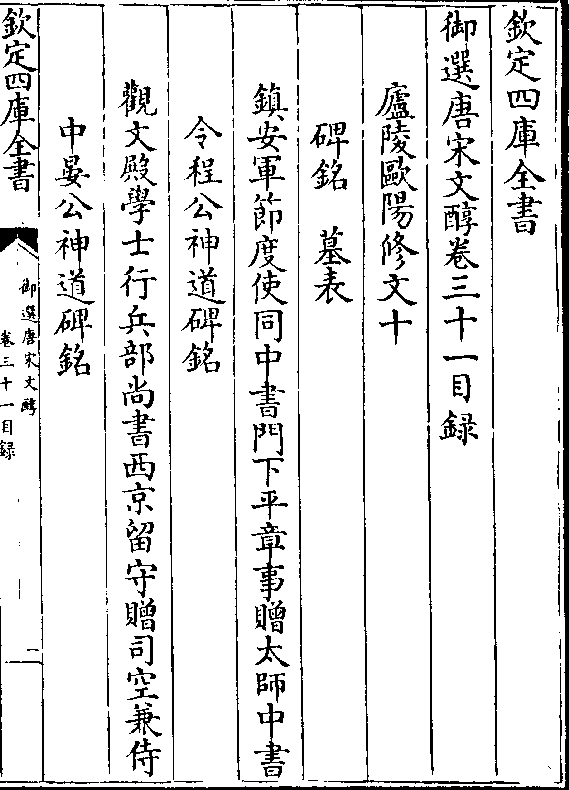 欽定四庫全書
御選唐宋文醇卷三十一目録
廬陵歐陽修文十
碑銘　墓表
鎮安軍節度使同中書門下平章事贈太師中書
令程公神道碑銘
觀文殿學士行兵部尚書西京留守贈司空兼侍
中晏公神道碑銘
欽定四庫全書
御選唐宋文醇
卷三十一目録
一